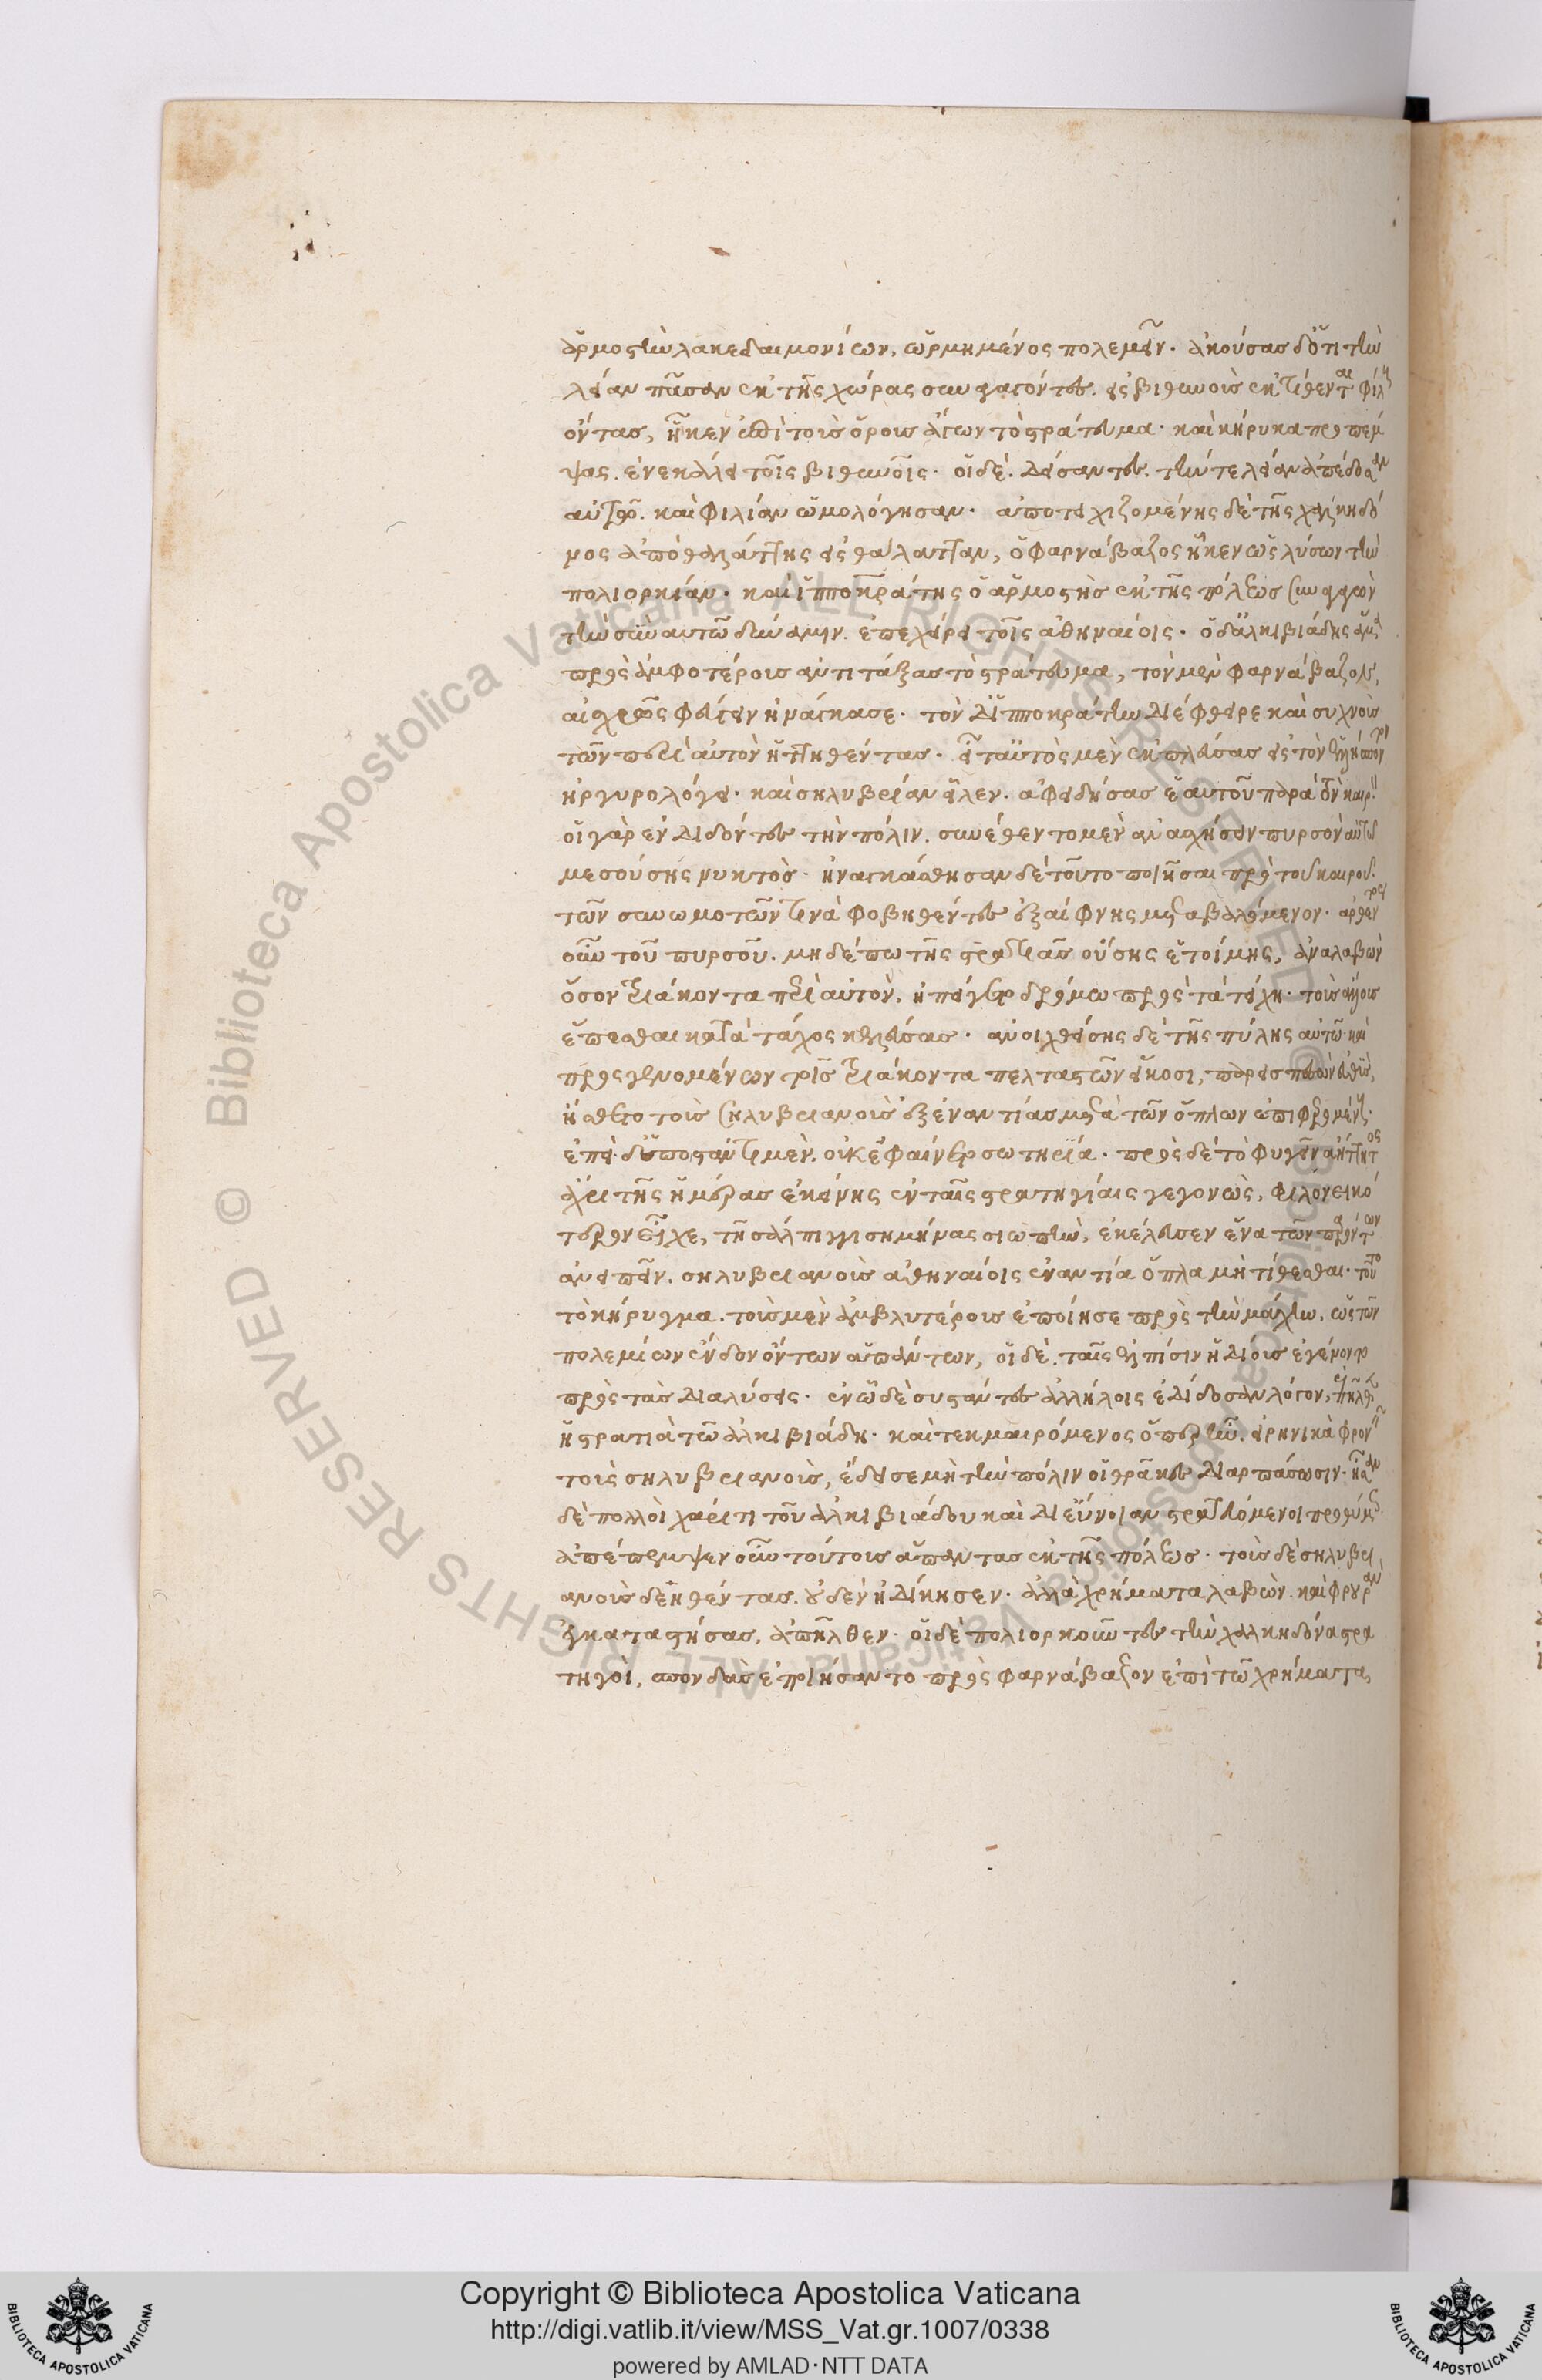 ἁρμοστὴν λακεδαιμονίων, ὡρμημένος πολεμεῖν. ἀκούσας δ' ὅτι τὴν
λείαν πᾶσαν ἐκ τῆς χώρας συναγαγόντες. εἰς βιθυνοὺς ἐκτίθενται φίλους
ὄντας, ἧκεν ἐπὶ τοὺς ὅρους ἄγων τὸ στράτευμα. καὶ κήρυκα προπέμ
ψας. ἐνεκάλει τοῖς βιθυνοῖς. οἱ δὲ. δείσαντες. τήν τε λείαν ἀπέδοσαν
αὐτῷ. καὶ φιλίαν ὡμολόγησαν. ἀποτειχιζομένης δὲ τῆς χαλκηδό
νος ἀπὸ θαλάττης εἰς θάλατταν, ὁ φαρνάβαζος ἧκεν ὡς λύσων τὴν
πολιορκίαν. καὶ ἱπποκράτης ὁ ἁρμοστὴς ἐκ τῆς πόλεως συναγαγὼν
τὴν σὺν αὐτῷ δύναμιν. ἐπεχείρει τοῖς ἀθηναίοις. ὁ δ' ἀλκιβιάδης ἅμα
πρὸς ἀμφοτέρους ἀντιτάξας τὸ στράτευμα, τὸν μὲν φαρνάβαζον,
αἰσχρῶς φεύγειν ἠνάγκασε. τὸν δ' ἱπποκράτην διέφθειρε καὶ συχνοὺς
τῶν περὶ αὐτὸν ἡττηθέντας. εἶτ' αὐτὸς μὲν ἐκπλεύσας εἰς τὸν ἑλλήσποντον
ἠργυρολόγει. καὶ σηλυβρίαν εἷλεν. ἀφειδήσας ἑαυτοῦ παρὰ τὸν καιρόν.
οἱ γὰρ ἐνδιδόντες τὴν πόλιν. συνέθεντο μὲν ἀνασχήσειν πυρσὸν αὐτῷ
μεσούσης νυκτὸς. ἠναγκάσθησαν δὲ τοῦτο ποιῆσαι πρὸ τοῦ καιροῦ.
τῶν συνωμοτῶν τινὰ φοβηθέντες ἐξαίφνης μεταβαλόμενον. ἀρθέντος
οὖν τοῦ πυρσοῦ. μηδέπω τῆς στρατιᾶς οὔσης ἑτοίμης, ἀναλαβὼν
ὅσον τριάκοντα περὶ αὐτὸν, ἠπείγετο δρόμῳ πρὸς τὰ τείχη. τοὺς ἄλλους
ἕπεσθαι κατὰ τάχος κελεύσας. ἀνοιχθείσης δὲ τῆς πύλης αὐτῷ καὶ
προσγενομένων τοῖς τριάκοντα πελταστῶν εἴκοσι, παρεισπεσὼν εὐθὺς,
ᾔσθετο τοὺς σηλυβριανοὺς ἐξ ἐναντίας μετὰ τῶν ὅπλων ἐπιφερομένους.
ἐπεὶ δ' ὑποστάντι μὲν. οὐκ ἐφαίνετο σωτηρία. πρὸς δὲ τὸ φυγεῖν ἀήττητος
ἄχρι τῆς ἡμέρας ἐκείνης ἐν ταῖς στρατηγίαις γεγονὼς, φιλονεικό
τερον εἶχε, τῇ σάλπιγγι σημήνας σιωπὴν, ἐκέλευσεν ἕνα τῶν παρόντων
ἀνειπεῖν. σηλυβριανοὺς ἀθηναίοις ἐναντία ὅπλα μὴ τίθεσθαι. τοῦτο
τὸ κήρυγμα. τοὺς μὲν ἀμβλυτέρους ἐποίησε πρὸς τὴν μάχην, ὡς τῶν
πολεμίων ἔνδον ὄντων ἁπάντων, οἱ δὲ. ταῖς ἐλπίσιν ἡδίους ἐγένοντο
πρὸς τὰς διαλύσεις. ἐν ᾧ δὲ συστάντες ἀλλήλοις ἐδίδοσαν λόγον, ἐπῆλθεν
ἡ στρατιὰ τῷ ἀλκιβιάδῃ. καὶ τεκμαιρόμενος ὅπερ ἦν. εἰρηνικὰ φρονεῖν
τοὺς σηλυβριανοὺς, ἔδεισε μὴ τὴν πόλιν οἱ θρᾷκες διαρπάσωσιν. ἦσαν
δὲ πολλοὶ χάριτι τοῦ ἀλκιβιάδου καὶ δι' εὔνοιαν στρατευόμενοι προθύμως.
ἀπέπεμψεν οὖν τούτους ἅπαντας ἐκ τῆς πόλεως. τοὺς δὲ σηλυβρι
ανοὺς δεηθέντας. οὐδὲν ἠδίκησεν. ἀλλὰ χρήματα λαβὼν. καὶ φρουρὰν
ἐγκαταστήσας, ἀπῆλθεν. οἱ δὲ πολιορκοῦντες τὴν χαλκηδόνα στρα
τηγοὶ, σπονδὰς ἐποιήσαντο πρὸς φαρνάβαζον ἐπὶ τῷ χρήματα
Copyright © Biblioteca Apostolica Vaticana
http://digi.vatlib.it/view/MSS_Vat.gr.1007/0338
powered by AMLAD·NTT DATA
BIBLIOTECA APOSTOLICA VATICANA
BIBLIOTECA APOSTOLICA VATICANA
© Biblioteca Apostolica Vaticana ALL RIGHTS RESERVED
© Biblioteca Apostolica Vaticana ALL RIGHTS RESERVED